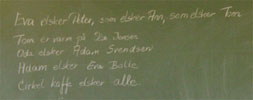 Eva elsker Adam, som elsker Ann, som elsker Tom
Tom er varm på Ida Jensen
Oda elsker Adam Svendsen
Adam elsker Eva Bolle
Cirkel kaffe elsker alle